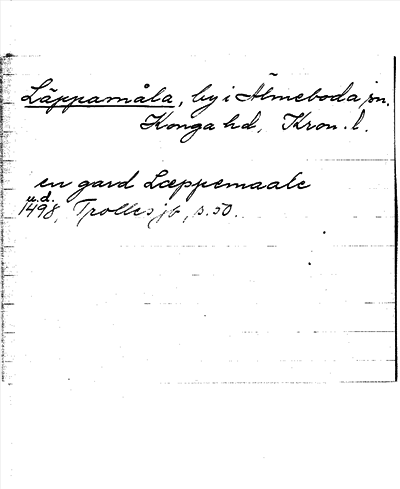 Läppamåla, by i Älmeboda sn.
Konga hd, Kron. l.
en gard Læppemaale
u.d.
1498, Trolles jb, s. 50.